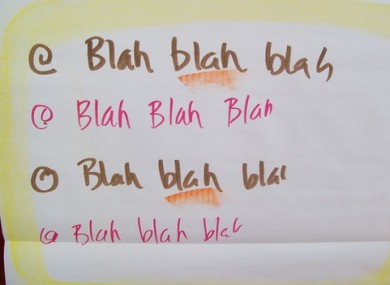 Blah blah blah
Blah Blah Blah
Blah blah blah
Blah blah blah